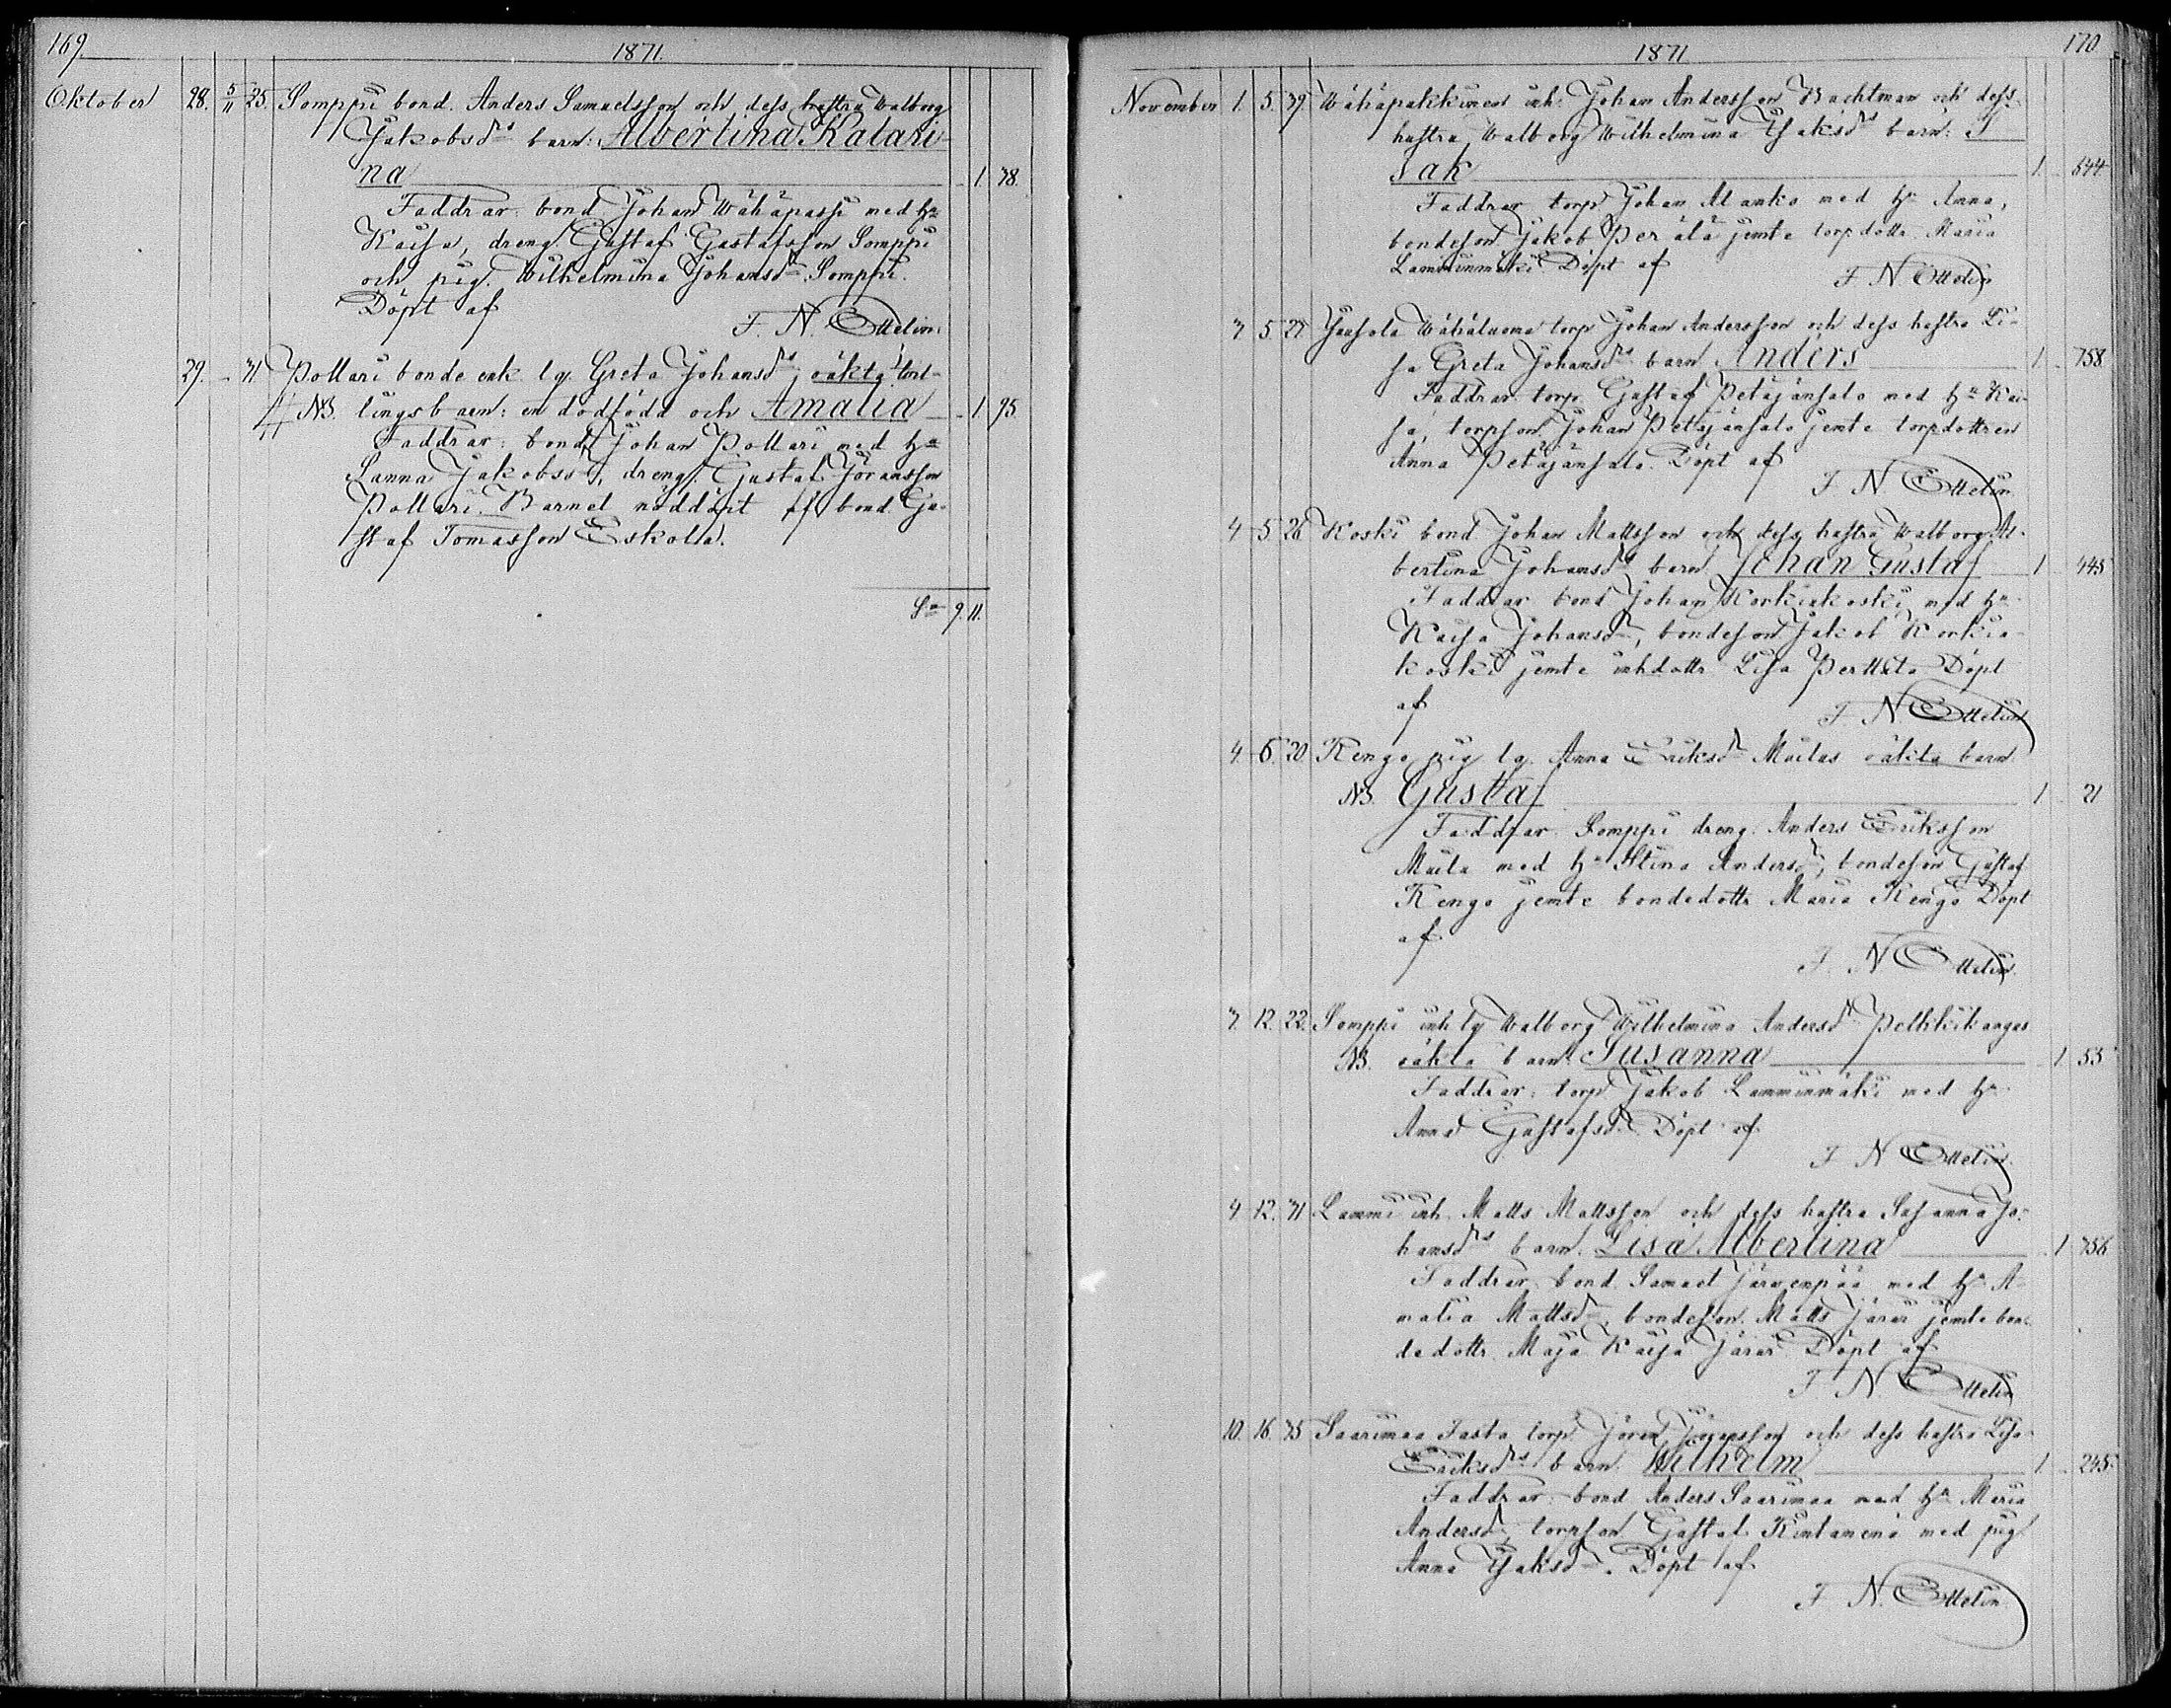 169.
1871.
Oktober 28. 5/11 25. Somppi bond. Anders Samuelsson och dess hustru Walborg
Jakobsdrs barn: Albertina Katari-
na 1. 38.
Faddrar: bond. Johan Wähäpassi med hu
Kaisa, dreng. Gustaf Gustafsson Somppi
och pig. Wilhelmina Johansdr Somppi.
Döpt af
F. N. Ottelin.
29. - 41. Pollari bonde enk. lg. Greta Johansdrs oäkta tvil-
NB. lingsbarn: en dödfödd och Amalia 1. 95.
Faddrar: bond. Johan Pollari med hu
Sanna Jakobsdr, dreng. Gustaf Göransson
Pollari. Barnet nöddöpt af bond. Gu-
staf Tomasson Eskola.
Sa 9. 11.
170.
1871
November 1. 5. 39. Wähäpakkinen inh. Johan Andersson Wachtman och dess
hustru Walborg Wilhelmina Isaksdrs barn: I
sak 1. 544
Faddrar torp. Johan Manko med hu Anna,
bondeson Jakob Perälä jemte torpdottr. Maria
Lamminmäki Döpt af
F. N Ottelin
3 5. 27. Wähäluoma torp Johan Andersson och dess hustru Li-
sa Greta Johansdrs barn Anders 1. 758.
Faddrar: torp. Gustaf Petäjänsalo med hu Kai-
sa, torpson Johan Petäjänsalo jemte torpdottren
Anna Petäjänsalo. Döpt af
F. N. Ottelin.
4 5. 26. Koski bond Johan Mattsson och dess hustru Walborg Al-
bertina Johansdrs barn Johan Gustaf 1 445
Faddrar bond Johan Korkiakoski med hu
Kaisa Johansdr, bondeson Jakob Korkia-
koski jemte inhdottr Lisa Perttula Döpt
af
F. N Ottelin
4. 5. 20. Kengo pig lg. Anna Eriksdr Mailas oäkta barn
NB. Gustaf 1. 21
Faddrar. Somppi dreng. Anders Eriksson
Maila med hu Stina Andersdr, bondeson Gustaf
Kengo jemte bondedottr Maria Kengo Döpt
af
F. N Ottelin.
7. 12. 22. Somppi inh lg Walborg Wilhelmina Andersdr
NB. oäkta barn: Susanna 1. 53
Faddrar: torp Jakob Lamminmäki med hu
Anna Gustafsdr Döpt af
F N Ottelin.
9. 12. 31. Lammi inh. Matts Mattsson och dess hustru Susanna Jo-
hansdrs barn. Lisa Albertina 1 756
Faddrar: bond. Samuel Järwenpää med hu A-
malia Mattsdr, bondeson. Matts Järäi jemte bon-
dedottr. Maja Kaisa Järäi Döpt af
F. N. Ottelin
10. 16. 35 Saarimaa torp Jöran Göransson och dess hustru Lisa
Eriksdrs barn. Wilhelm 1. 245.
Faddrar: bond Anders Saarimaa med hu Maria
Andersdr, torpson Gustaf med pig.
Anna Isaksdr. Döpt af
F. N. Ottelin.